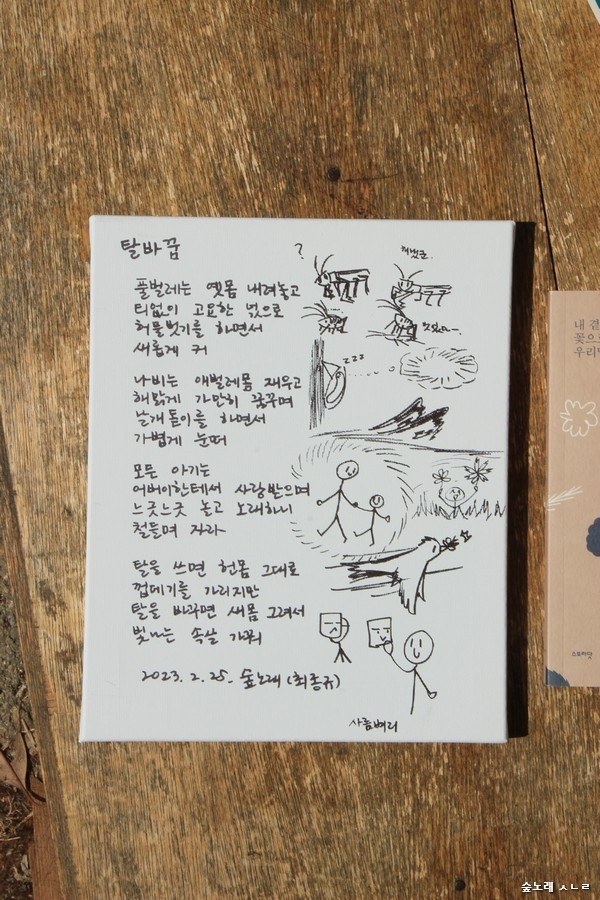 탈바꿈
풀벌레는 옛몸 내려놓고
티없이 고요한 넋으로
허물벗기를 하면서
새롭게 커
나비는 애벌레몸 재우고
해맑게 가만히 꿈꾸며
날개돋이를 하면서
가볍게 눈떠
모든 아기는
어버이한테서 사랑받으며
느긋느긋 놀고 노래하니
철들며 자라
탈을 쓰면 헌몸 그대로
껍데기를 가리지만
탈을 바꾸면 새몸 그려서
빛나는 속살 가꿔
2023. 2. 25. 숲노래 (최종규)
사름벼리
?
zzz
내 곁
꽃으
우리
스토리닷
숲노래 ㅅㄴㄹ